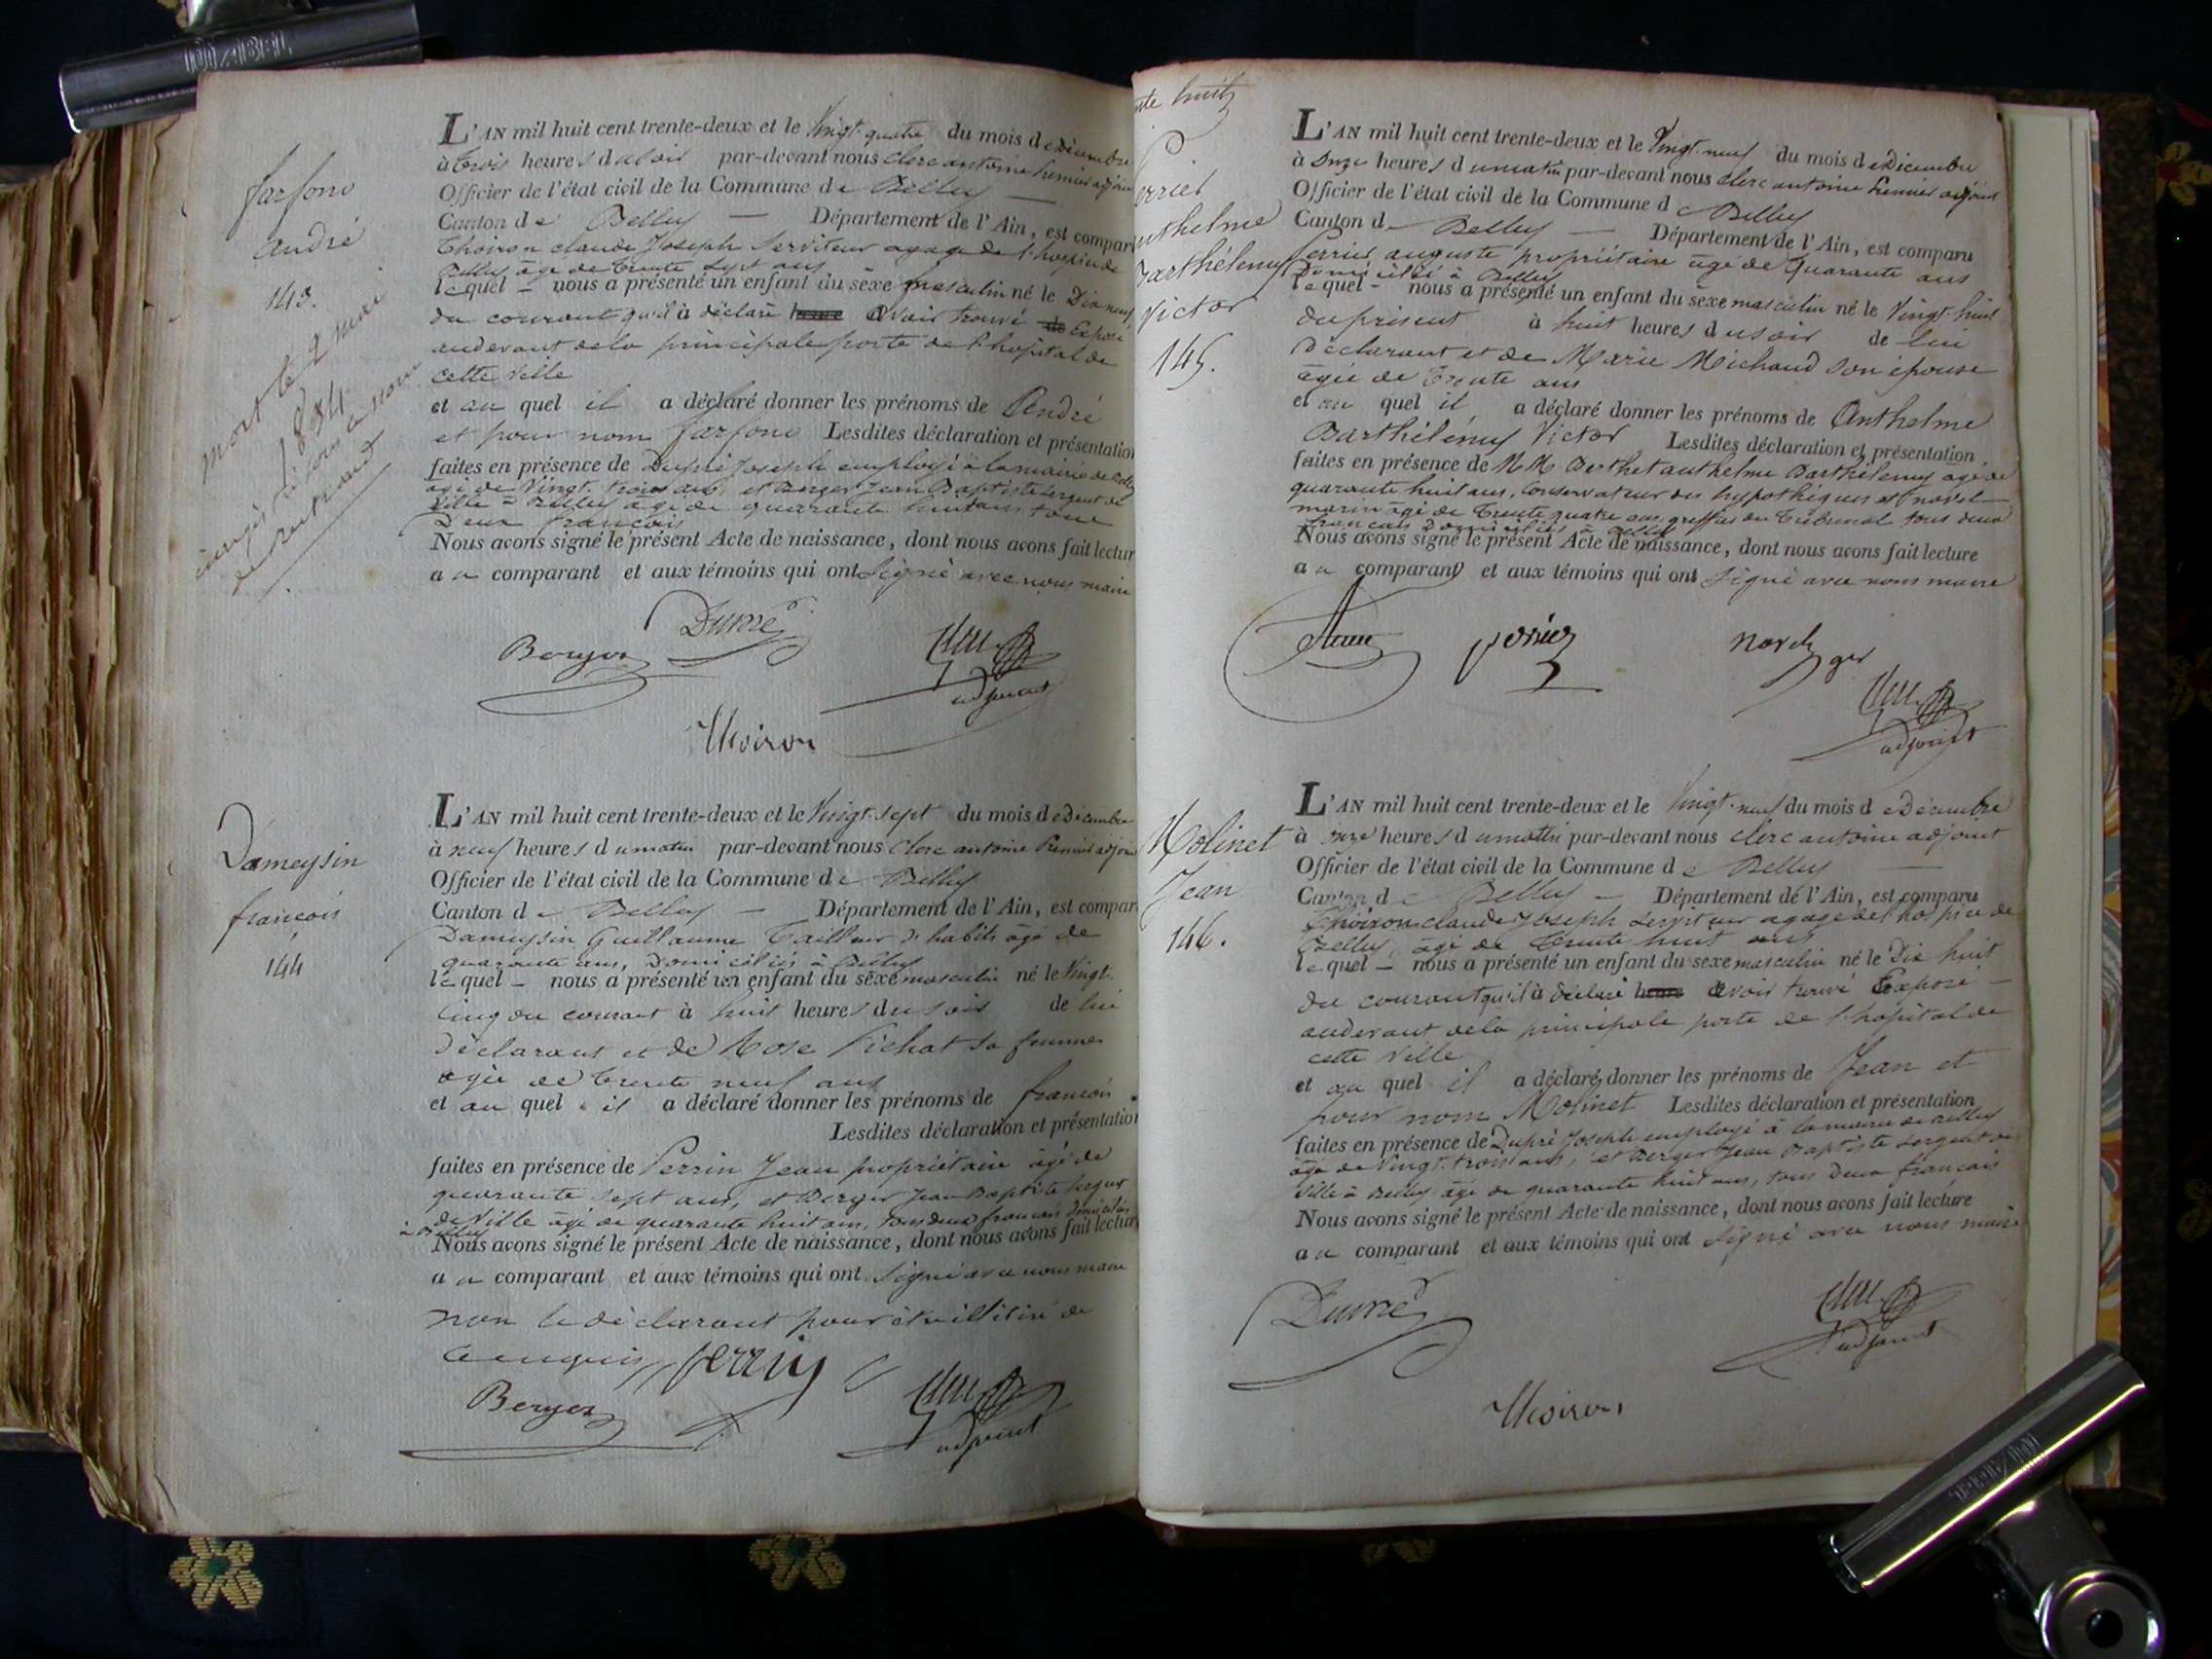 farfone
andré
143.
mort le 2 mai
1834
L'AN mil huit cent trente-deux et le Vingt quatre du mois de Décembre
à trois heures du soir par-devant nous Clerc antoine premier adjoint
Officier de l'état civil de la Commune de Belley
Canton de Belley — Département de l'Ain, est compar
Thoiron claude Joseph Serviteur agage de l'hospice de
Belley âgé de trente sept ans
lequel — nous a présenté un enfant du sèxe masculin né le Dix neuf
du courant qu'il à déclaré avoir trouvé Exposé
audevant dela principale porte de l'hopital de
cette ville
et au quel il a déclaré donner les prénoms de André
et pour nom farfone Lesdites déclaration et présentation
faites en présence de Dupré Joseph employé à la mairie de Belley
âgé de Vingt trois ans, et Berger Jean Baptiste sergent de
Ville à Belley âgé de quarante huit ans tous
Deux français
Nous avons signé le présent Acte de naissance, dont nous avons fait lectur
au comparant et aux témoins qui ont Signé avec nous maire
Berger Dupré
adjoint
Thoiron
Dameysin
françois
144
L'AN mil huit cent trente-deux et le Vingt-sept du mois de Décembre
à neuf heures du matin par-devant nous Clerc antoine Premier adjoint
Officier de l'état civil de la Commune de Belley
Canton de Belley — Département de l'Ain, est compar
Dameysin Guillaume Tailleur d'habits âgé de
quarante ans, Domiciliés à Belley
lequel — nous a présenté un enfant du sèxe masculin né le Vingt
Cinq du courant à huit heures du soir de lui
Déclarant et de Rose Pichat sa femme
agée de trente neuf ans
et au quel il a déclaré donner les prénoms de françois
Lesdites déclaration et présentation
faites en présence de Perrin Jean propriétaire âgé de
quarante sept ans, et Berger Jean Baptiste sergent
de Ville âgé de quarante huit ans, tous deux français Domiciliés
à Belley
Nous avons signé le présent Acte de naissance, dont nous avons fait lectur
au comparant et aux témoins qui ont Signé avec nous maire
non le déclarant pour être illitiré de
ce enquis Perrin
Berger
adjoint
nte huit
Perrier
anthelme
Barthélemy
Victor
145.
L'AN mil huit cent trente-deux et le Vingt-neuf du mois de Décembre
à Onze heures du matin par-devant nous Clerc antoine Premier adjoint
Officier de l'état civil de la Commune de Belley
Canton de Belley — Département de l'Ain, est comparu
Perrier auguste propriétaire âgé de Quarante ans
Domicilié à Belley
lequel — nous a présenté un enfant du sèxe masculin né le Vingt huit
du présent à huit heures du soir de lui
Déclarant et de Marie Michaud son épouse
agée de trente ans
et au quel il a déclaré donner les prénoms de Anthelme
Barthélémy Victor Lesdites déclaration et présentation
faites en présence de MM Berthet anthelme Barthélemy âgé de
quarante huit ans, Conservateur des hypothèques et novel
marin âgé de Trente quatre ans, greffier du Tribunal tous deux
français Domiciliés à Belley
Nous avons signé le présent Acte de naissance, dont nous avons fait lecture
au comparant et aux témoins qui ont Signé avec nous maire
perrier novel ger
adjoint
Molinet
Jean
146.
L'AN mil huit cent trente-deux et le Vingt-neuf du mois de Décembre
à onze heures du matin par-devant nous Clerc antoine adjoint
Officier de l'état civil de la Commune de Belley
Canton de Belley — Département de l'Ain, est comparu
Thoiron claude Joseph serviteur agage de l'hospice de
Belley, âgé de trente huit ans
lequel — nous a présenté un enfant du sexe masculin né le Dix huit
du courant qu'il à déclaré avoir trouvé Exposé
audevant dela principale porte de l'hopital de
cette Ville
et au quel il a déclaré donner les prénoms de Jean et
pour nom Molinet Lesdites déclaration et présentation
faites en présence de Dupré Joseph employé à la mairie de Belley
âgé de Vingt trois ans, et Berger Jean Baptiste sergent de
Ville à Belley âgé de quarante huit ans, tous Deux français
Nous avons signé le présent Acte de naissance, dont nous avons fait lecture
au comparant et aux témoins qui ont Signé avec nous maire
Dupré
adjoint
Thoiron